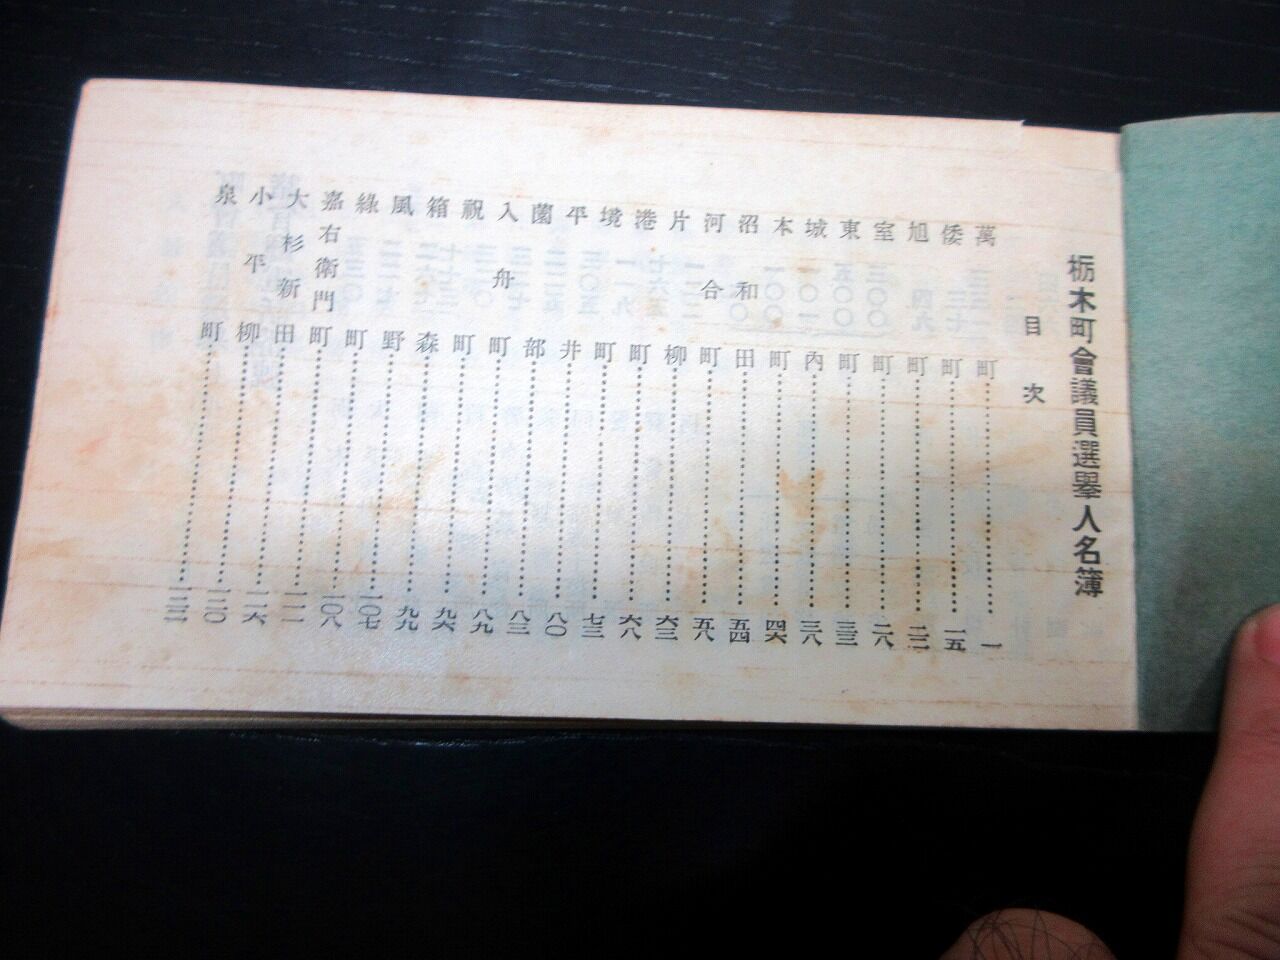 栃木町會議員選舉人名簿
目次
萬町……一
倭町……一五
旭町……二二
室町……二八
東町……三三
城内……三八
本町……四六
沼和田……五四
河合町……五八
片柳……六三
港町……六八
境町……七三
平井……八〇
薗部……八三
入舟町……八九
祝町……九六
箱森……九九
風野……一〇七
綠町……一〇八
嘉右衛門町……一一一
大杉新田……一一六
小平柳……一二〇
泉町……一二三